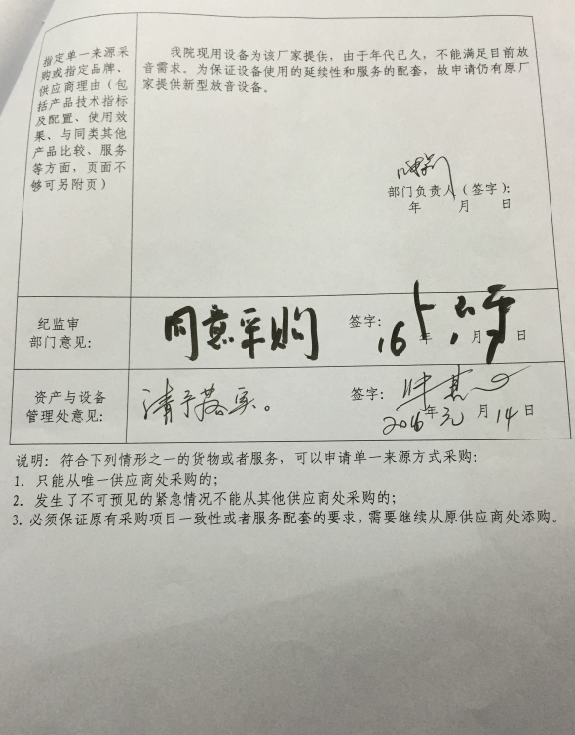 指定单一来源采
购或指定品牌、
供应商理由（包
括产品技术指标
及配置、使用效
果、与同类其他
产品比较、服务
等方面，页面不
够可另附页）
我院现用设备为该厂家提供，由于年代已久，不能满足目前放
音需求。为保证设备使用的延续性和服务的配套，故申请仍有原厂
家提供新型放音设备。
部门负责人（签字）：
年 月 日
纪监审
部门意见：
同意采购
签字：
16 年 1 月 日
资产与设备
管理处意见：
请予落实。
签字：
2016 年 元 月 14 日
说明：符合下列情形之一的货物或者服务，可以申请单一来源方式采购：
1. 只能从唯一供应商处采购的；
2. 发生了不可预见的紧急情况不能从其他供应商处采购的；
3. 必须保证原有采购项目一致性或者服务配套的要求，需要继续从原供应商处添购。